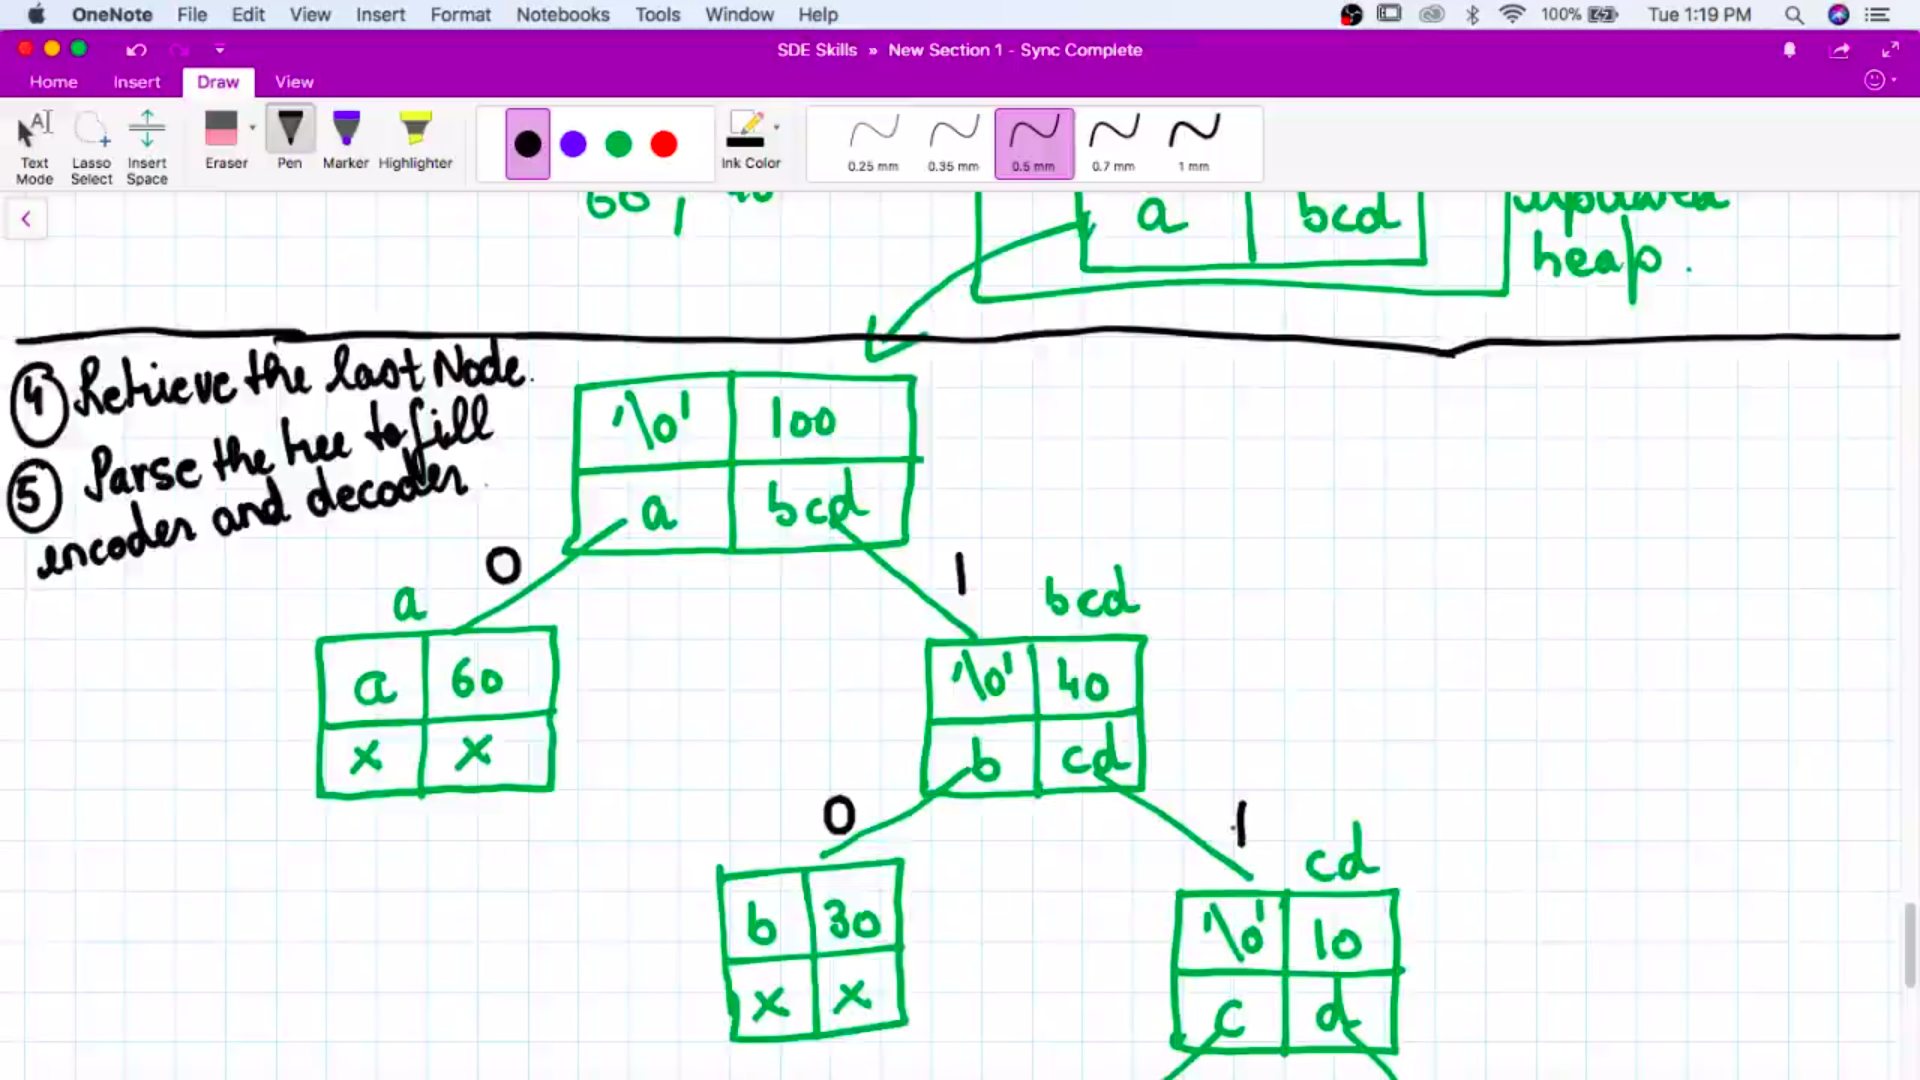 OneNote File Edit View Insert Format Notebooks Tools Window Help 100% Tue 1:19 PM
SDE Skills » New Section 1 - Sync Complete
Home Insert Draw View
Text Mode
Lasso Select
Insert Space
Eraser
Pen
Marker
Highlighter
Ink Color
0.25 mm
0.35 mm
0.5 mm
0.7 mm
1 mm
60, 40
a bcd
updated
heap.
4 Retrieve the last Node.
5 Parse the tree to fill
encoder and decoder.
'\0' 100
a bcd
0 1
a
a 60
x x
bcd
'\0' 40
b cd
0 1
b 30
x x
cd
'\0' 10
c d